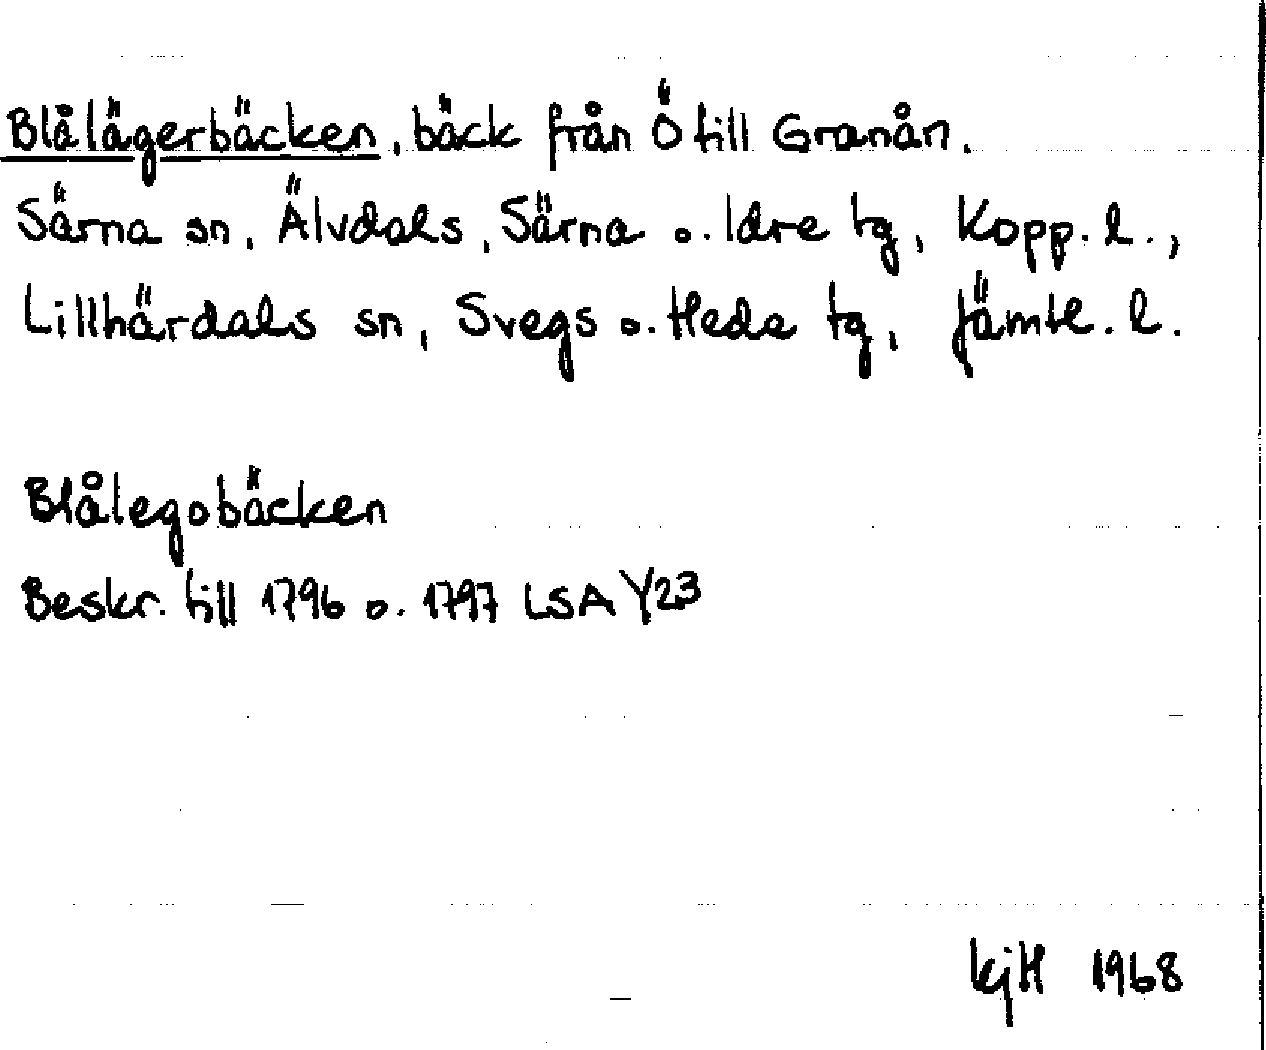 Blålägerbäcken, bäck från Ö till Granån.
Särna sn, Älvdals, Särna o. Idre tg, Kopp. l.,
Lillhärdals sn, Svegs o. Heda tg, Jämtl. l.
Blålegobäcken
Beskr. till 1796 o. 1797 LSA Y23
kjH 1968